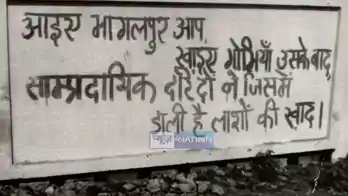 आइए भागलपुर आप,
खाइए गोभियाँ उसके बाद,
साम्प्रदायिक दरिंदों ने जिसमें
डाली है लाशों की खाद।
NATION